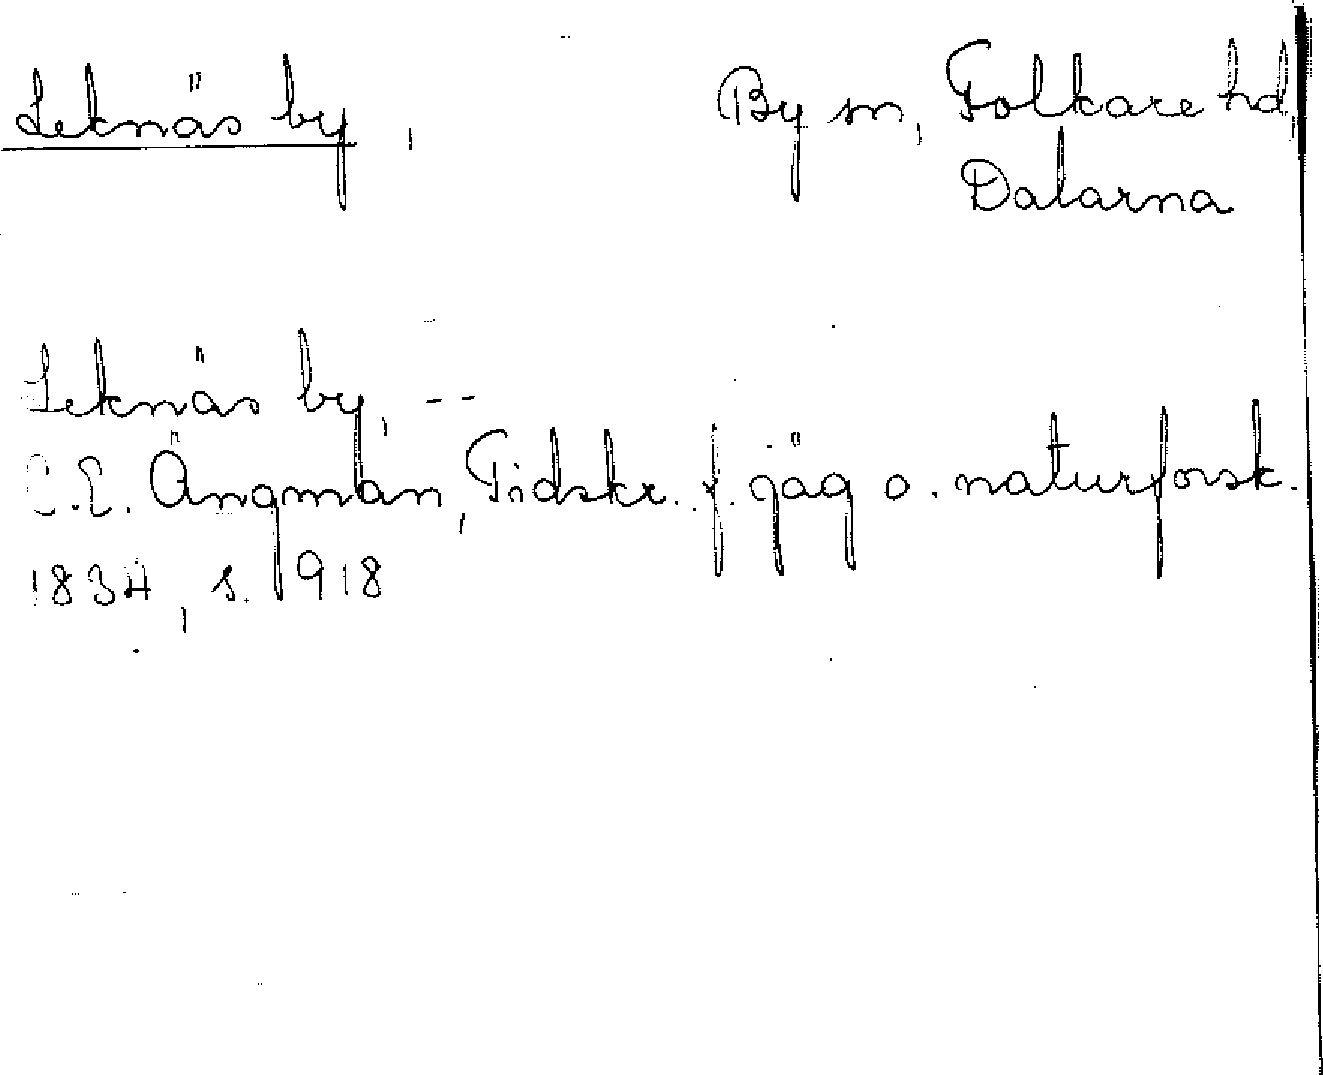 Leknäs by, By sn, Folkare hd,
Dalarna
Leknäs by, --
C.E. Ängman, Tidskr. f. jäg o. naturforsk.
1834, s. 918